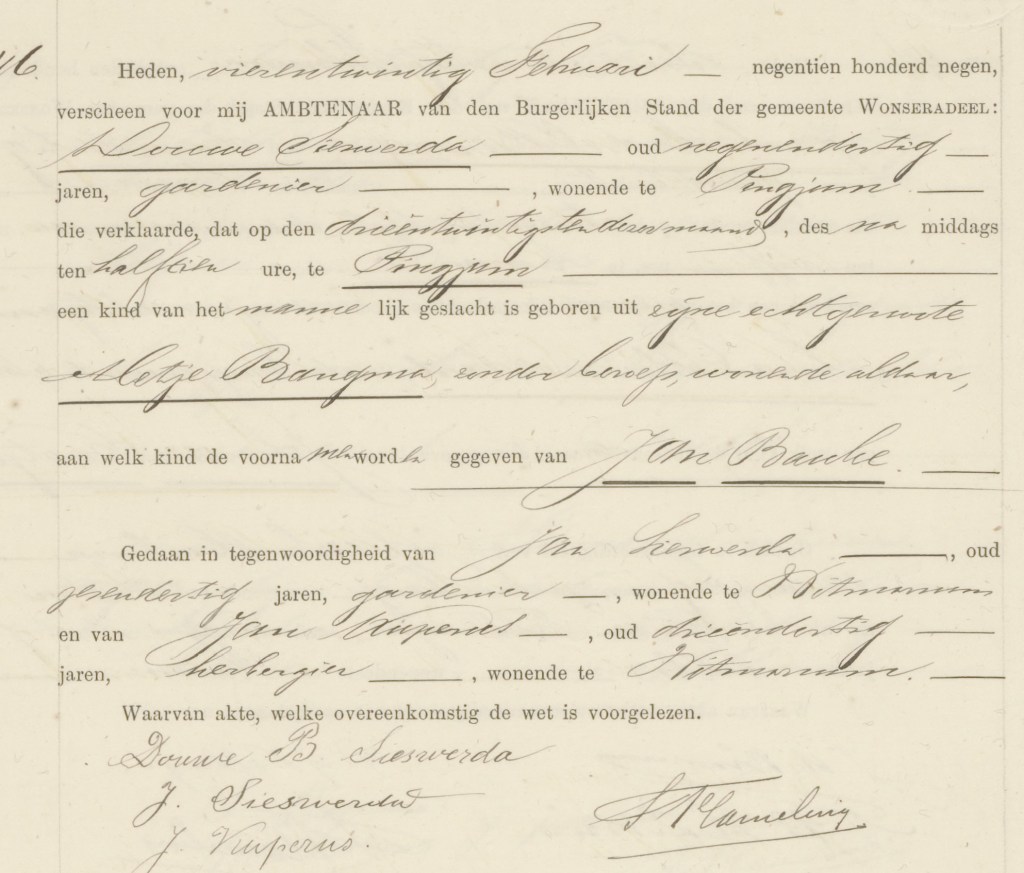 46.
Heden, vierentwintig Februari — negentien honderd negen,
verscheen voor mij AMBTENAAR van den Burgerlijken Stand der gemeente WONSERADEEL:
Douwe Sieswerda — oud negenendertig —
jaren, gardenier — , wonende te Pingjum. —
die verklaarde, dat op den drieëntwintigsten dezer maand , des na middags
ten half tien ure, te Pingjum —
een kind van het manne lijk geslacht is geboren uit zijne echtgenoote
Aletje Bangma, zonder beroep, wonende aldaar,
aan welk kind de voorna men word en gegeven van Jan Bauke. —
Gedaan in tegenwoordigheid van Jan Sieswerda — , oud
zesendertig jaren, gardenier — , wonende te Witmarsum
en van Jan Kuperus — , oud drieëndertig —
jaren, herbergier — , wonende te Witmarsum. —
Waarvan akte, welke overeenkomstig de wet is voorgelezen.
Douwe B Sieswerda
J. Sieswerda
J. Kuperus.